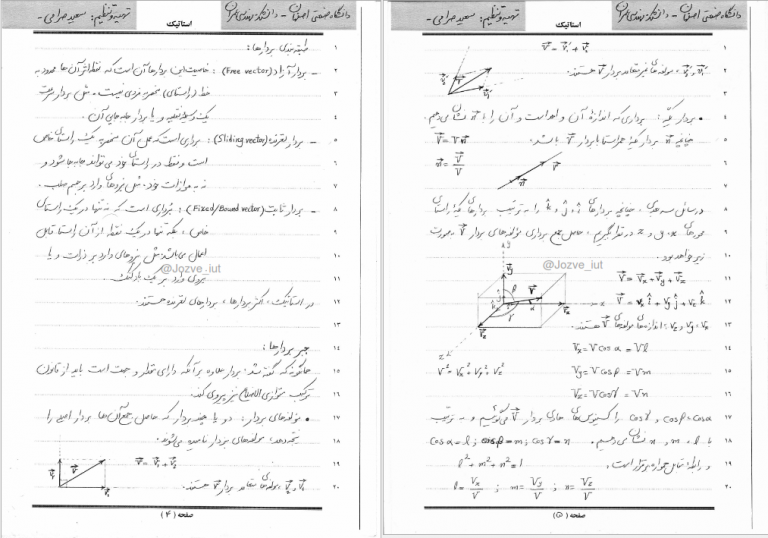 دانشگاه صنعتی اصفهان - دانشکده مهندسی عمران
استاتیک
تهیه و تنظیم: سعید صرامی -
۱ طبقه بندی بردارها:
۲ - بردار آزاد (Free vector): خاصیت این بردارها آن است که فقط اثر آن ها محدود به
۳ خط (راستای) منحصر بفردی نیست. مثل بردار سرعت
۴ یک وسیله نقلیه و یا بردار جابه جایی آن.
۵ - بردار لغزنده (Sliding vector): برداری است که عمل آن منحصر به یک راستای خاص
۶ است و فقط در راستای خود می تواند جابه جا شود و
۷ نه به موازات خود. مثل نیروهای وارد بر جسم صلب.
۸ - بردار ثابت (Fixed/Bound vector): برداری است که نه تنها در یک راستای
۹ خاص، بلکه تنها در یک نقطه از آن راستا قابل
۱۰ اعمال می باشد. مثل نیروهای وارد بر ذرات و یا
@Jozve_iut
۱۱ نیروی وارد بر یک بادکنک.
۱۲ در استاتیک، اکثر بردارها، بردارهای لغزنده هستند.
۱۳
۱۴ جبر بردارها:
۱۵ همانگونه که گفته شد: بردار علاوه بر آنکه دارای مقدار و جهت است باید از قانون
۱۶ ترکیب متوازی الاضلاع نیز پیروی کند.
۱۷ • مولفه های بردار: دو یا چند بردار که حاصل جمع آن ها بردار اصلی را
۱۸ نتیجه دهد، مولفه های بردار نامیده می شوند.
۱۹ V = V₁ + V₂
۲۰ V₁ و V₂ مولفه های متعامد بردار V هستند.
صفحه (۴)
دانشگاه صنعتی اصفهان - دانشکده مهندسی عمران
استاتیک
تهیه و تنظیم: سعید صرامی -
۱ V = V₁' + V₂'
۲ V₁' و V₂' مولفه های غیر متعامد بردار V هستند.
۳
۴ • بردار یکه: برداری که اندازهٔ آن واحد است و آن را با n نشان می دهیم.
۵ چنانچه n بردار یکهٔ هم راستا با بردار V باشد. V = Vn
۶ n = V/V
۷
۸ در مسائل سه بعدی، چنانچه بردارهای i و j و k را به ترتیب بردارهای یکهٔ راستای
۹ محورهای x، y و z در نظر بگیریم، حاصل جمع برداری مولفه های بردار V به صورت
۱۰ زیر خواهد بود.
@Jozve_iut
۱۱ V = Vx + Vy + Vz
۱۲ V = Vx î + Vy ĵ + Vz k̂
۱۳ Vx، Vy و Vz: اندازه های مولفه های V هستند.
۱۴ Vx = V cos α = Vl
۱۵ V² = Vx² + Vy² + Vz² Vy = V cos β = Vm
۱۶ Vz = V cos γ = Vn
۱۷ cos α، cos β و cos γ را کسینوس های هادی بردار V می گوییم و به ترتیب
۱۸ با l، m و n نشان می دهیم. cos α = l ; cos β = m ; cos γ = n
۱۹ و رابطهٔ مقابل همواره برقرار است. l² + m² + n² = 1
۲۰ l = Vx/V ; m = Vy/V ; n = Vz/V
صفحه (۵)